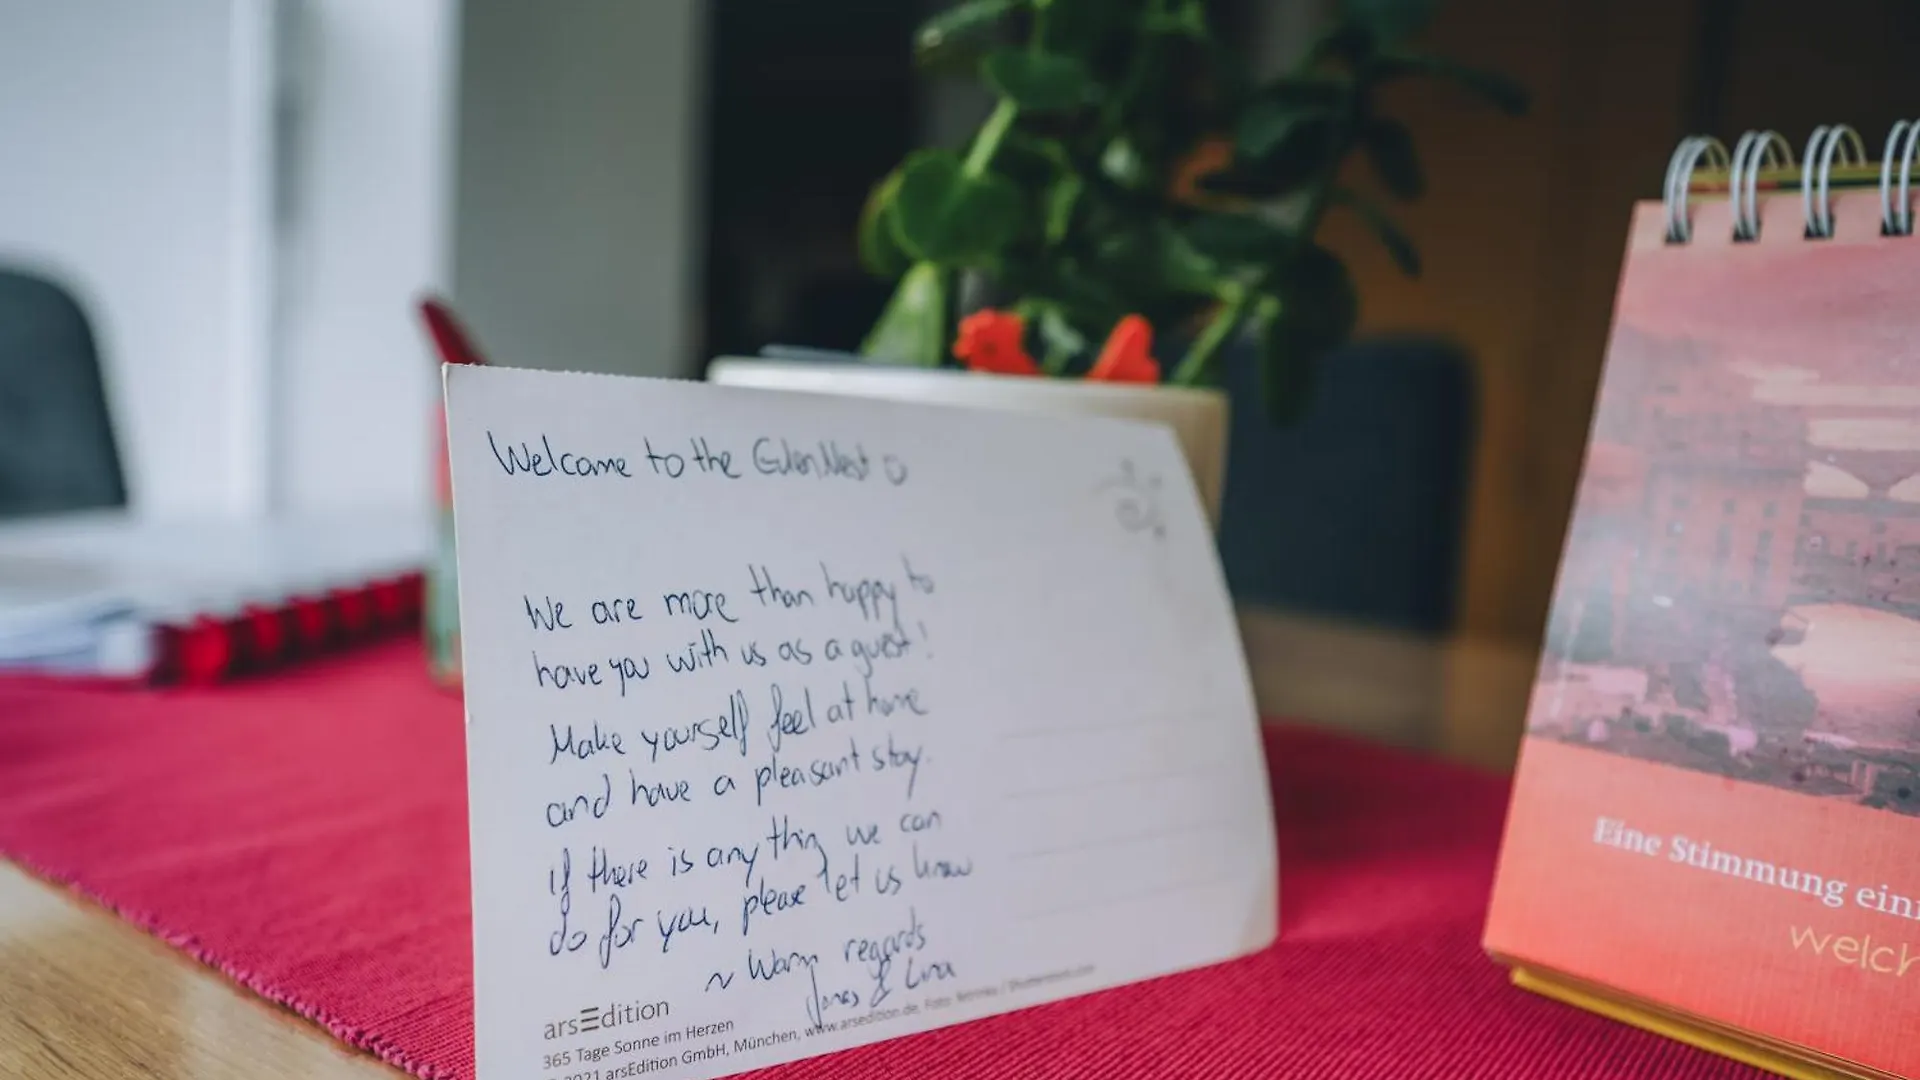 Welcome to the EulenNest
We are more than happy to
have you with us as a guest!
Make yourself feel at home
and have a pleasant stay.
If there is anything we can
do for you, please let us know
~ Warm regards
Jonas & Lina
arsEdition
365 Tage Sonne im Herzen
2021 arsEdition GmbH, München, www.arsedition.de, Foto: / Shutterstock.com
Eine Stimmung
welch